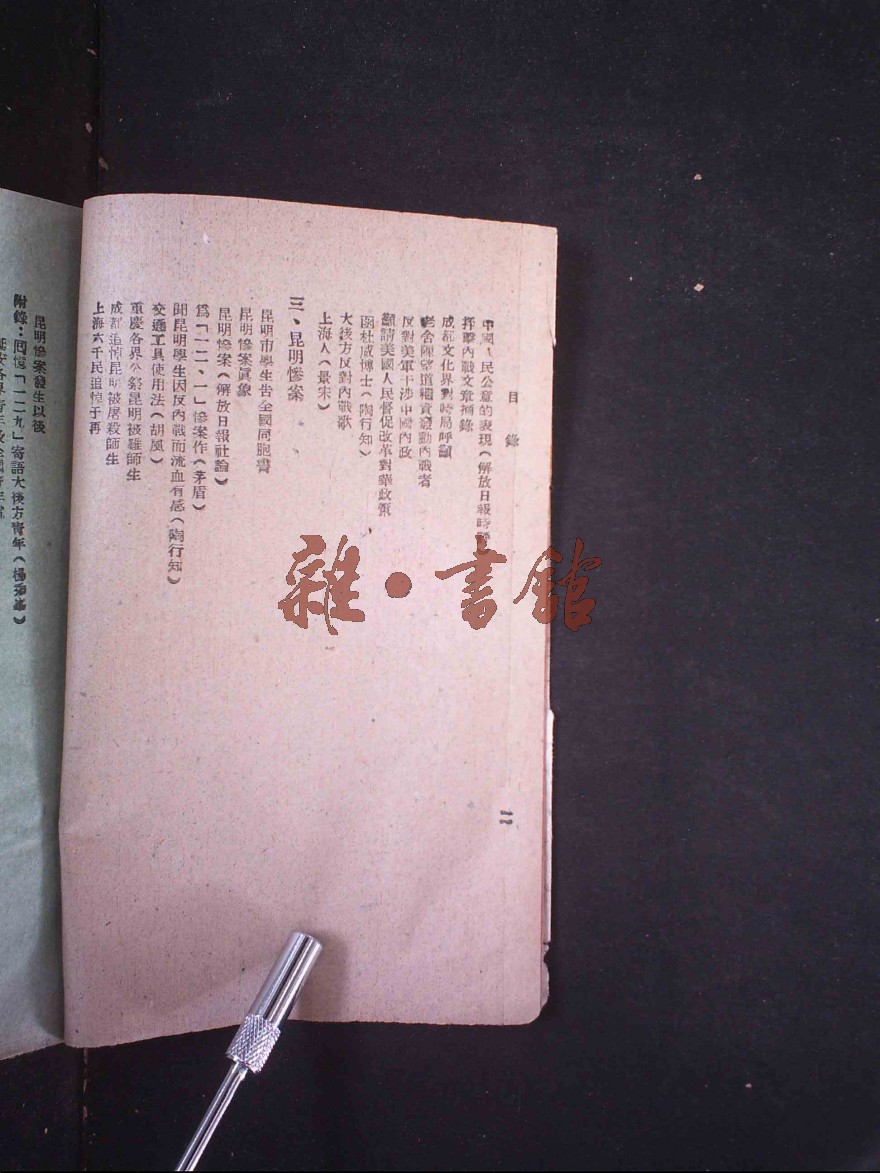 目錄
二
中國人民公意的表現（解放日報時評）
抨擊內戰文章補錄
成都文化界對時局呼籲
老舍陳望道繩責發動內戰者
反對美軍干涉中國內政
籲請美國人民督促改革對華政策
函杜威博士（陶行知）
大後方反對內戰歌
上海人（景宋）
三、昆明慘案
昆明市學生告全國同胞書
昆明慘案眞象
昆明慘案（解放日報社論）
爲「一二、一」慘案作（茅盾）
聞昆明學生因反內戰而流血有感（陶行知）
交通工具使用法（胡風）
重慶各界公祭昆明被難師生
成都追悼昆明被屠殺師生
上海六千民追悼于再
昆明慘案發生以後
附錄：囘憶「一二九」寄語大後方靑年（楊
雜·書館